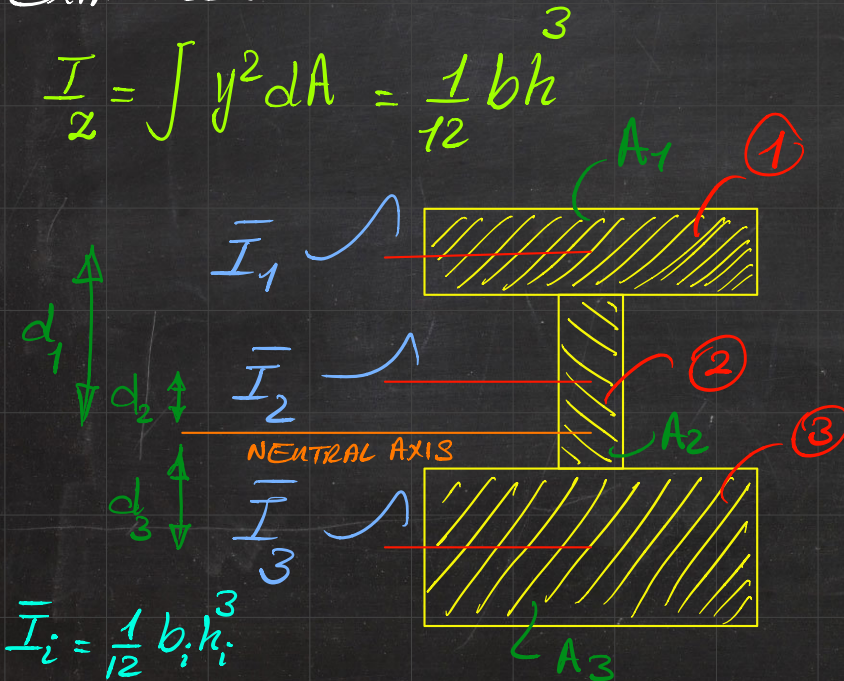 I_z = ∫ y² dA = 1/12 bh³
A₁
①
Ī₁
d₁
②
Ī₂
d₂
A₂
③
NEUTRAL AXIS
d₃
Ī₃
Ī_i = 1/12 b_i h_i³
A₃